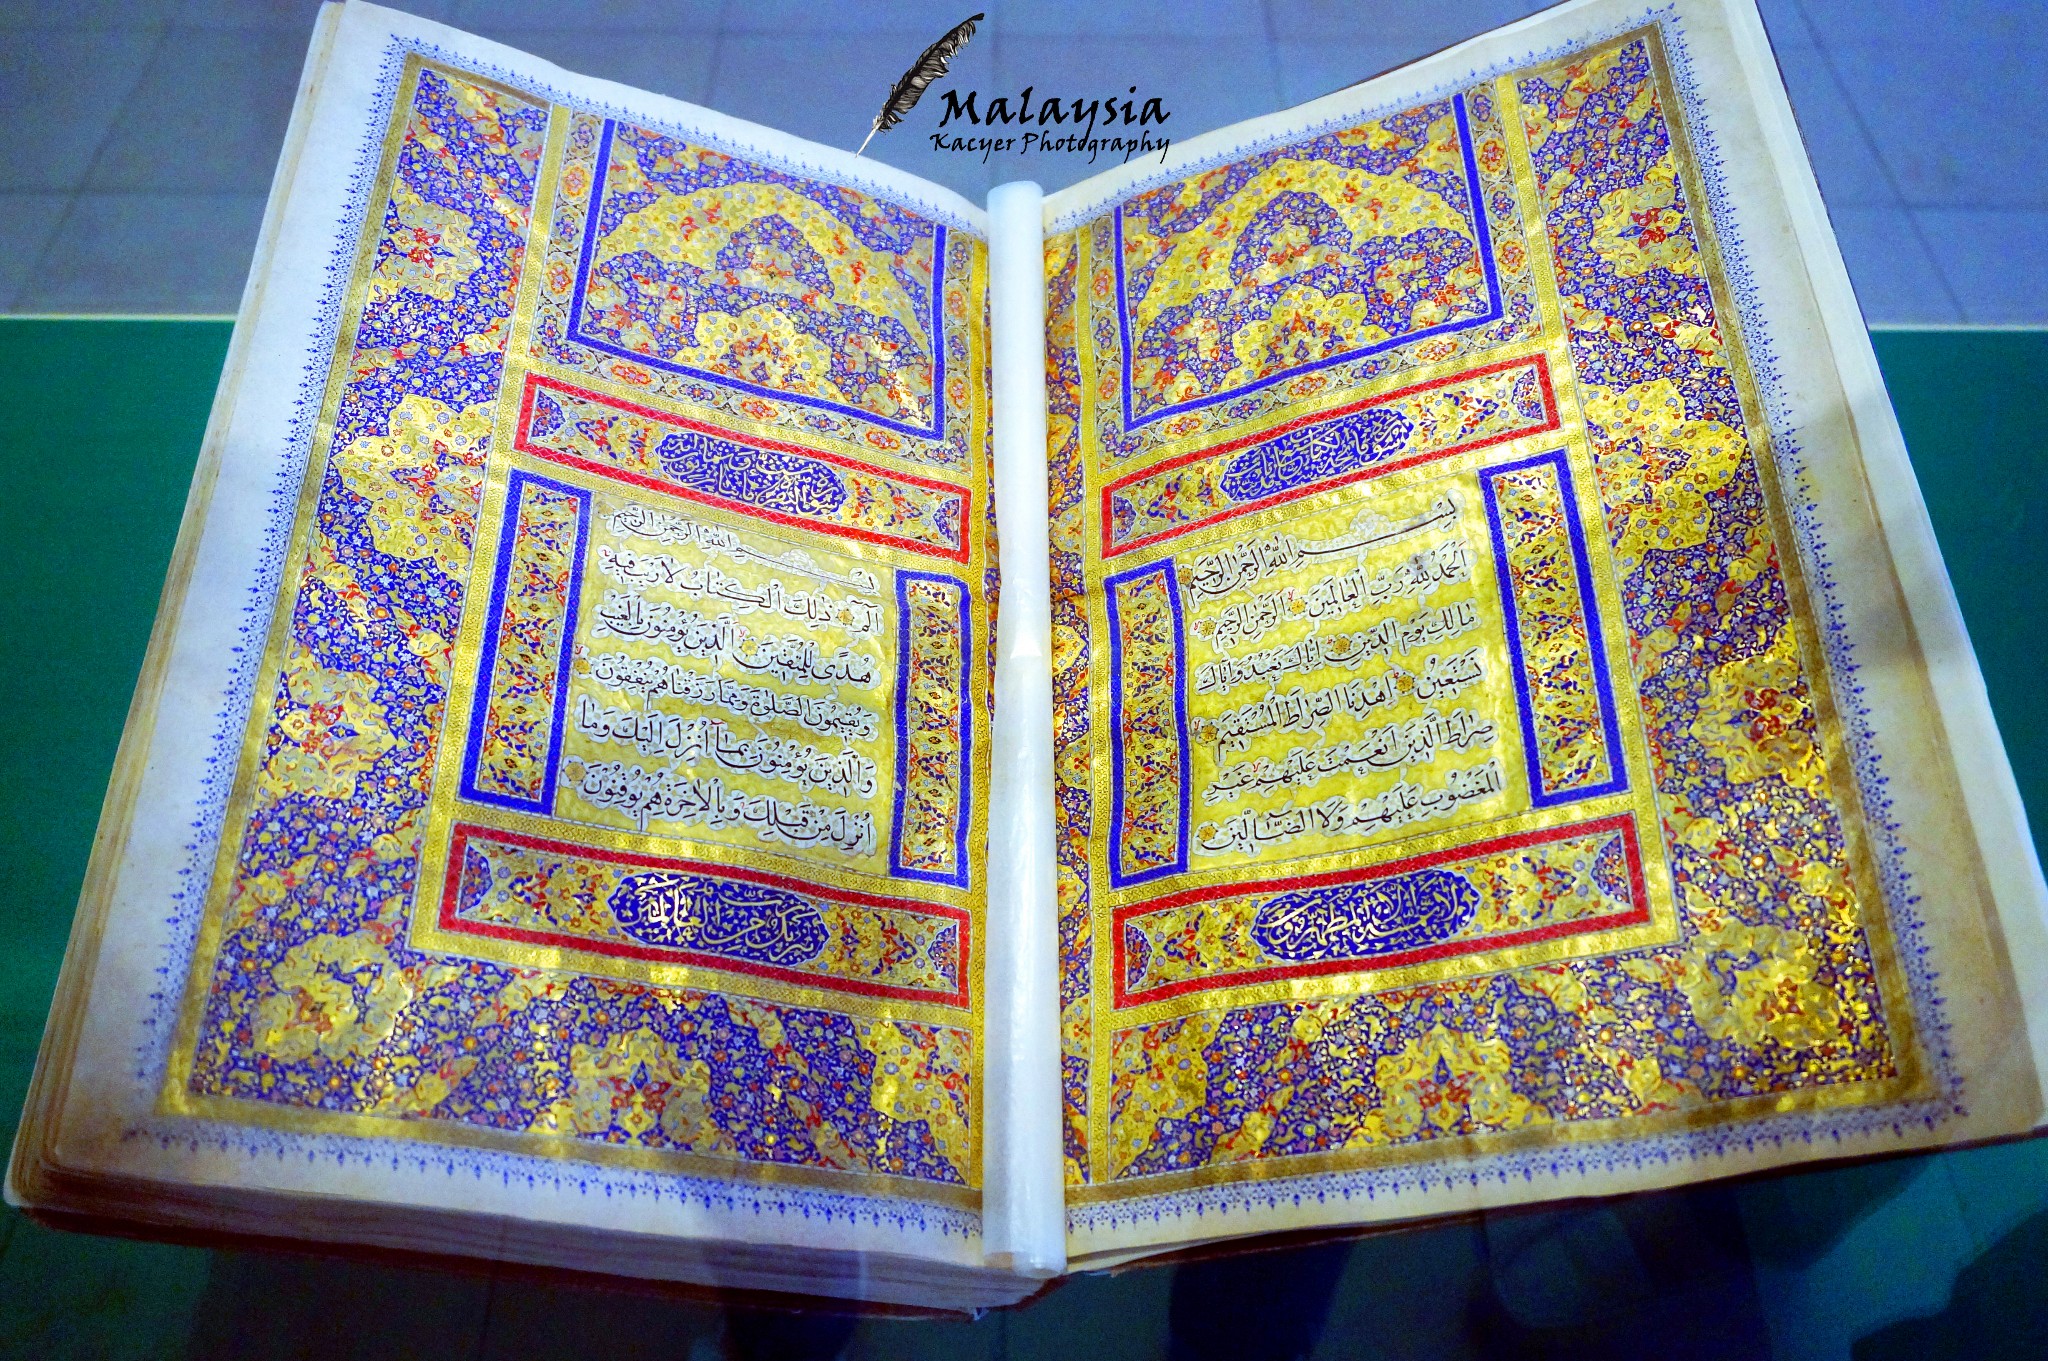 Malaysia
Kacyer Photography
بسم الله الرحمن الرحيم
الحمد لله رب العالمين الرحمن الرحيم
مالك يوم الدين اياك نعبد واياك
نستعين اهدنا الصراط المستقيم
صراط الذين انعمت عليهم غير
المغضوب عليهم ولا الضالين
لا يمسه الا المطهرون
بسم الله الرحمن الرحيم
الم ذلك الكتاب لا ريب فيه
هدى للمتقين الذين يؤمنون بالغيب
ويقيمون الصلوة ومما رزقناهم ينفقون
والذين يؤمنون بما انزل اليك وما
انزل من قبلك وبالاخرة هم يوقنون
تنزيل من رب العالمين